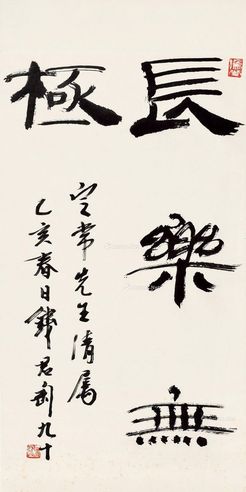 長樂無
極
定常先生清屬
乙亥春日錢君匋九十